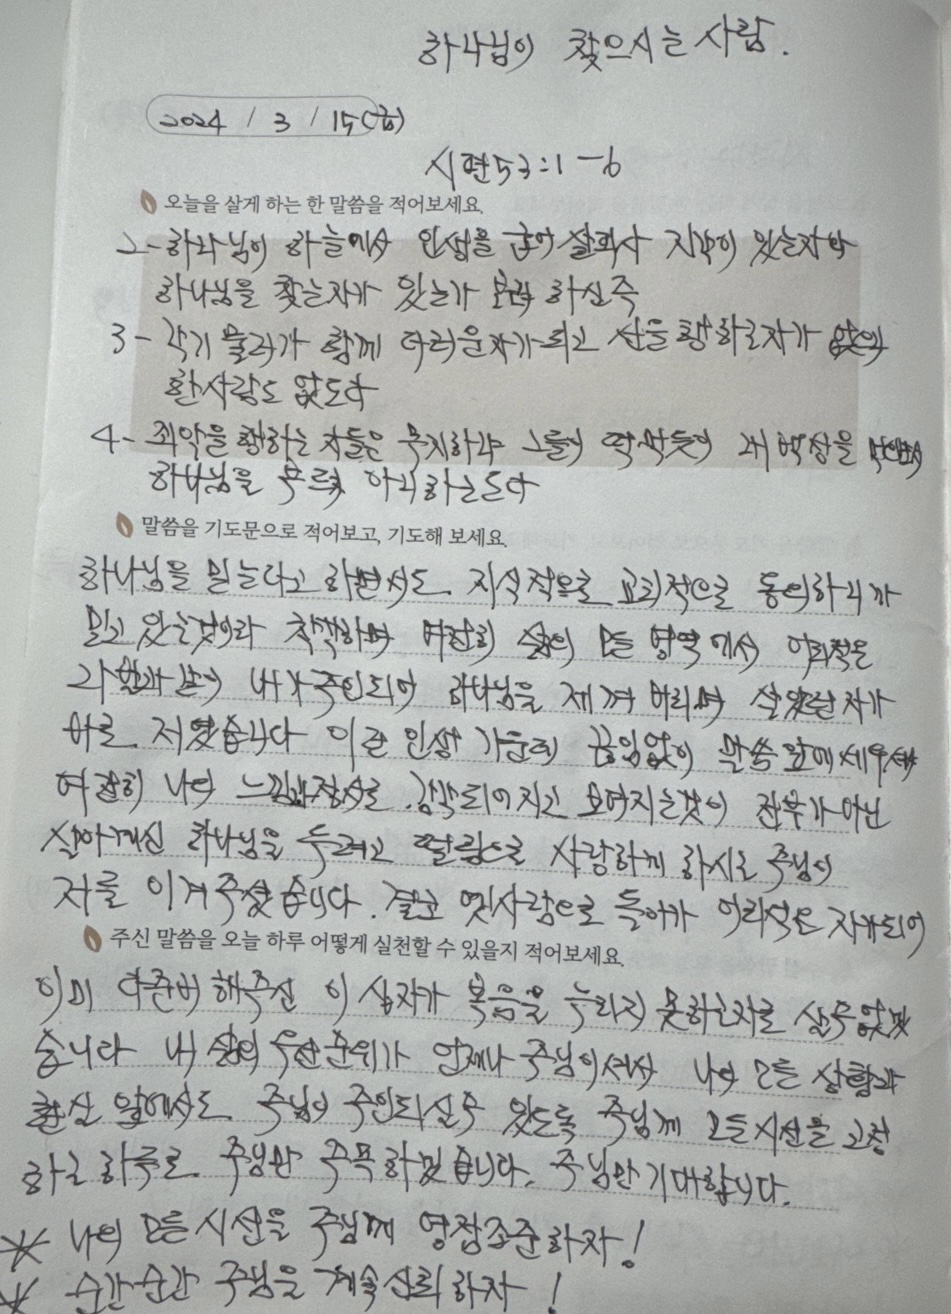 하나님이 찾으시는 사람.
2024 / 3 / 15 (금)
시편53:1-6
오늘을 살게 하는 한 말씀을 적어보세요.
2- 하나님이 하늘에서 인생을 굽어 살피사 지각이 있는자와
하나님을 찾는자가 있는가 보려 하신즉
3- 각기 물러가 함께 더러운자가 되고 선을 행하는자가 없으니
한사람도 없도다
4- 죄악을 행하는 자들은 무지하냐 그들이 떡먹듯이 내 백성을 먹으면서
하나님을 부르지 아니하는도다
말씀을 기도문으로 적어보고, 기도해 보세요.
하나님을 믿는다고 하면서도 지식적으로 교리적으로 동의하니까
믿고 있는것이라 착각하며 여전히 삶의 모든 영역에서 어리석은
내가 주인되어 하나님을 제껴 버리며 살았던 자가
바로 저였습니다 이런 인생 가운데 끊임없이 말씀 앞에 세우셔서
여전히 나의 느낌과 정서로 보여지는것이 전부가 아닌
살아계신 하나님을 두려고 떨림으로 사랑하게 하시는 주님이
저를 이겨주셨습니다. 결코 옛사람으로 돌아가 어리석은 자가되어
주신 말씀을 오늘 하루 어떻게 실천할 수 있을지 적어보세요.
이미 다준비 해주신 이 십자가 복음을 누리지 못하는자로 살수없겠
습니다 내 삶의 우선순위가 언제나 주님이셔서 나의 모든 상황과
현실 앞에서도 주님이 주인되실수 있도록 주님께 모든시선을 고정
하는 하루로 주님만 주목하겠습니다. 주님만 기대합니다.
* 나의 모든 시선을 주님께 영점조준하자!
* 순간순간 주님을 계속 신뢰하자 !